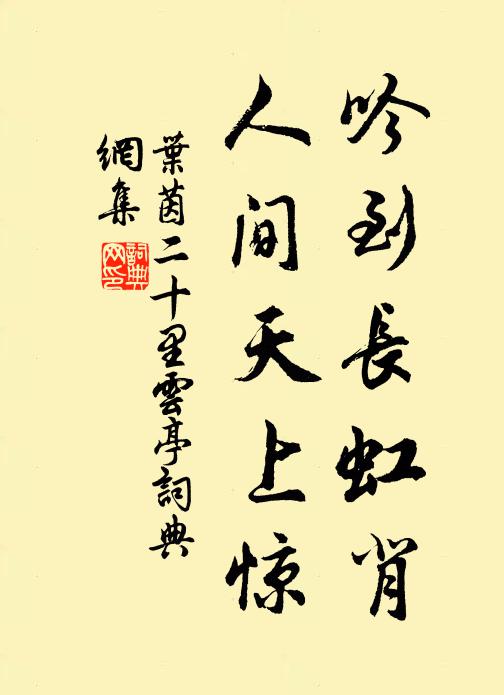 吟到長虹背
人間天上惊
葉茵二十里雲亭詞典
網集
詞典
网印